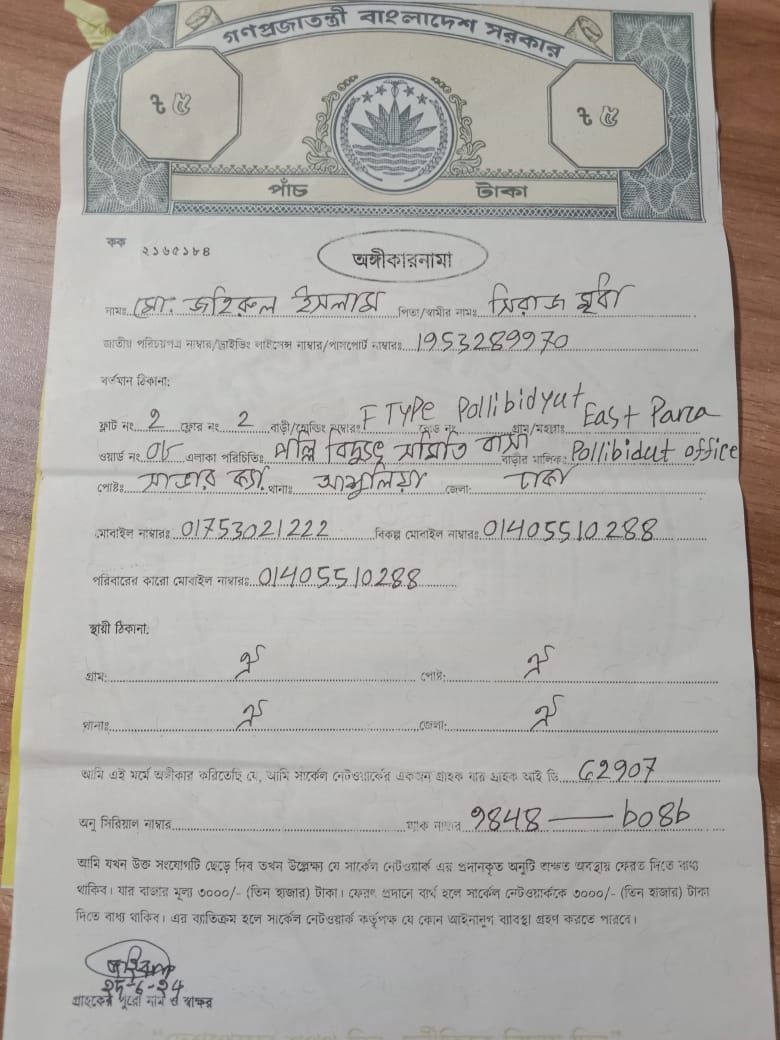 গণপ্রজাতন্ত্রী বাংলাদেশ সরকার
৳ ৫ ৳ ৫
পাঁচ টাকা
কক ২১৬৫১৮৪
অঙ্গীকারনামা
নামঃ মো. জহিরুল ইসলাম পিতা/স্বামীর নামঃ সিরাজ মৃর্ধা
জাতীয় পরিচয়পত্র নাম্বার/ড্রাইভিং লাইসেন্স নাম্বার/পাসপোর্ট নাম্বারঃ 1953289970
বর্তমান ঠিকানা:
ফ্লাট নং 2 ফ্লোর নং 2 বাড়ী/হোল্ডিং নাম্বারঃ F TYPE Pollibidyut রোড নং গ্রাম/মহল্লাঃ East Para
ওয়ার্ড নং 05 এলাকা পরিচিতিঃ পল্লি বিদুৎ সমিতি বাসা বাড়ীর মালিকঃ Pollibidut office
পোষ্টঃ সাভার ক্যা. থানাঃ আশুলিয়া জেলা: ঢাকা
মোবাইল নাম্বারঃ 01753021222 বিকল্প মোবাইল নাম্বারঃ 01405510288
পরিবারের কারো মোবাইল নাম্বারঃ 01405510288
স্থায়ী ঠিকানা:
গ্রাম: ঐ পোষ্ট: ঐ
থানাঃ ঐ জেলা: ঐ
আমি এই মর্মে অঙ্গীকার করিতেছি যে, আমি সার্কেল নেটওয়ার্কের একজন গ্রাহক যার গ্রাহক আই ডি 62907
অনু সিরিয়াল নাম্বার ম্যাক নাম্বার 9848 — b08b
আমি যখন উক্ত সংযোগটি ছেড়ে দিব তখন উল্লেক্ষ্য যে সার্কেল নেটওয়ার্ক এর প্রদানকৃত অনুটি অক্ষত অবস্থায় ফেরত দিতে বাধ্য
থাকিব। যার বাজার মূল্য ৩০০০/- (তিন হাজার) টাকা। ফেরৎ প্রদানে ব্যর্থ হলে সার্কেল নেটওয়ার্ককে ৩০০০/- (তিন হাজার) টাকা
দিতে বাধ্য থাকিব। এর ব্যতিক্রম হলে সার্কেল নেটওয়ার্ক কর্তৃপক্ষ যে কোন আইনানুগ ব্যাবস্থা গ্রহণ করতে পারবে।
জহিরুল
২৫-৬-২৪
গ্রাহকের পুরো নাম ও স্বাক্ষর